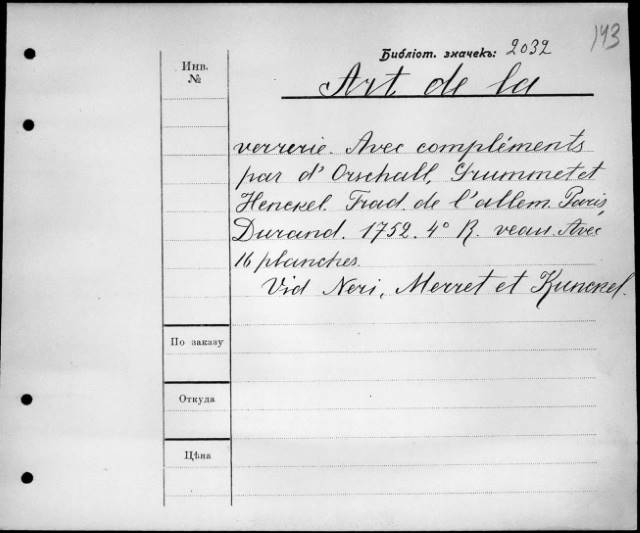 193
Библіот. значекъ: 2032
Инв.
№
Art de la
verrerie. Avec compléments
par d'Orschall, Grummet et
Henckel. Trad. de l'allem. Paris,
Durand. 1752. 4° R. veau. Avec
16 planches.
Vid Neri, Merret et Kunckel.
По заказу
Откуда
Цѣна